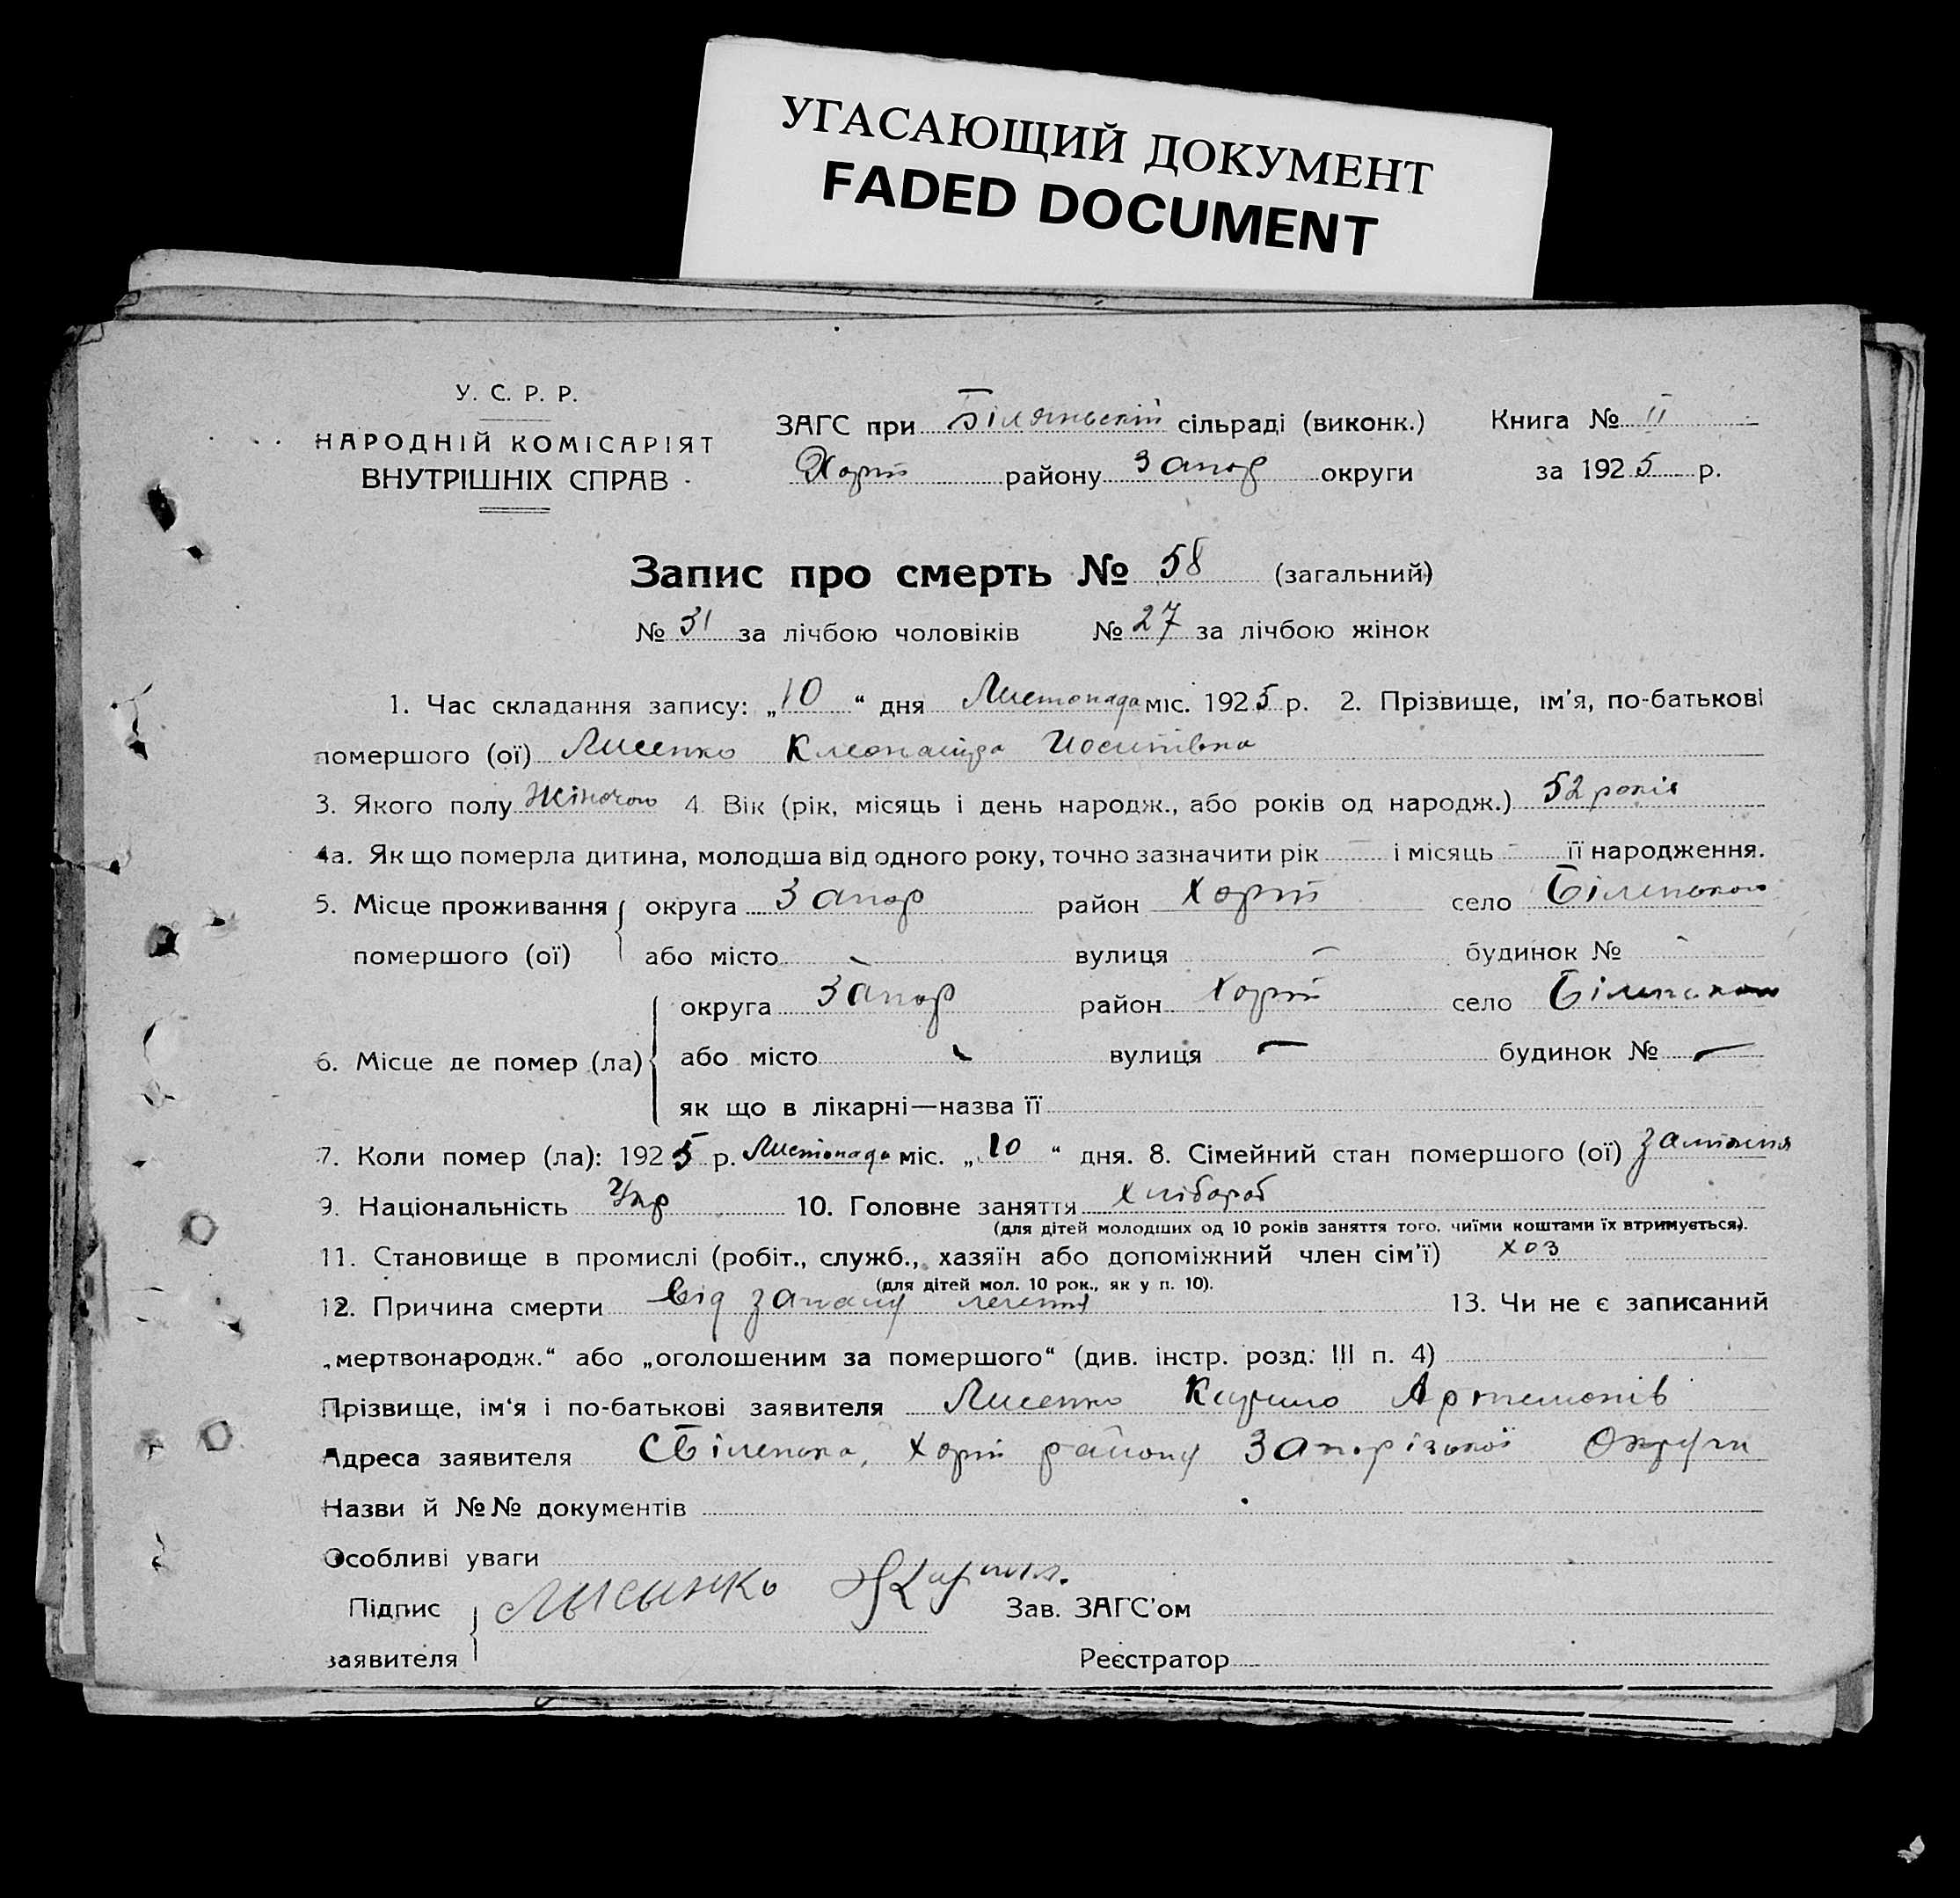 УГАСАЮЩИЙ ДОКУМЕНТ
FADED DOCUMENT
У. С. Р. Р.
НАРОДНІЙ КОМІСАРІЯТ
ВНУТРІШНІХ СПРАВ
ЗАГС при сільраді (виконк.) Книга № II
Хорт району Запор округи за 1925 р.
Запис про смерть № 58 (загальний)
№ 31 за лічбою чоловіків № 27 за лічбою жінок
1. Час складання запису: „10“ дня Листопада міс. 1925 р. 2. Прізвище, ім'я, по-батькові
помершого (ої) Лисенко Йосипівна
3. Якого полу Жіночого 4. Вік (рік, місяць і день народж., або років од народж.) 52 років
4а. Як що померла дитина, молодша від одного року, точно зазначити рік — і місяць — її народження.
5. Місце проживання округа Запор район Хорт село Біленького
помершого (ої) або місто вулиця — будинок № -
округа Запор район Хорт село Біленького
6. Місце де помер (ла) або місто вулиця — будинок № —
як що в лікарні—назва її
7. Коли помер (ла): 1925 р. Листопада міс. „10“ дня. 8. Сімейний стан помершого (ої)
9. Національність Укр 10. Головне заняття хлібороб
(для дітей молодших од 10 років заняття того, чиїми коштами їх втримується).
11. Становище в промислі (робіт., служб., хазяїн або допоміжний член сім'ї) хоз
(для дітей мол. 10 рок., як у п. 10).
12. Причина смерти Від легенів 13. Чи не є записаний
„мертвонародж.“ або „оголошеним за помершого“ (див. інстр. розд: III п. 4)
Прізвище, ім'я і по-батькові заявителя Лисенко Кирило Артемонів
Адреса заявителя С Біленька, Хорт району Запорізької Округи
Назви й №№ документів
Особливі уваги
Підпис Лысынко Зав. ЗАГС'ом
заявителя Реєстратор